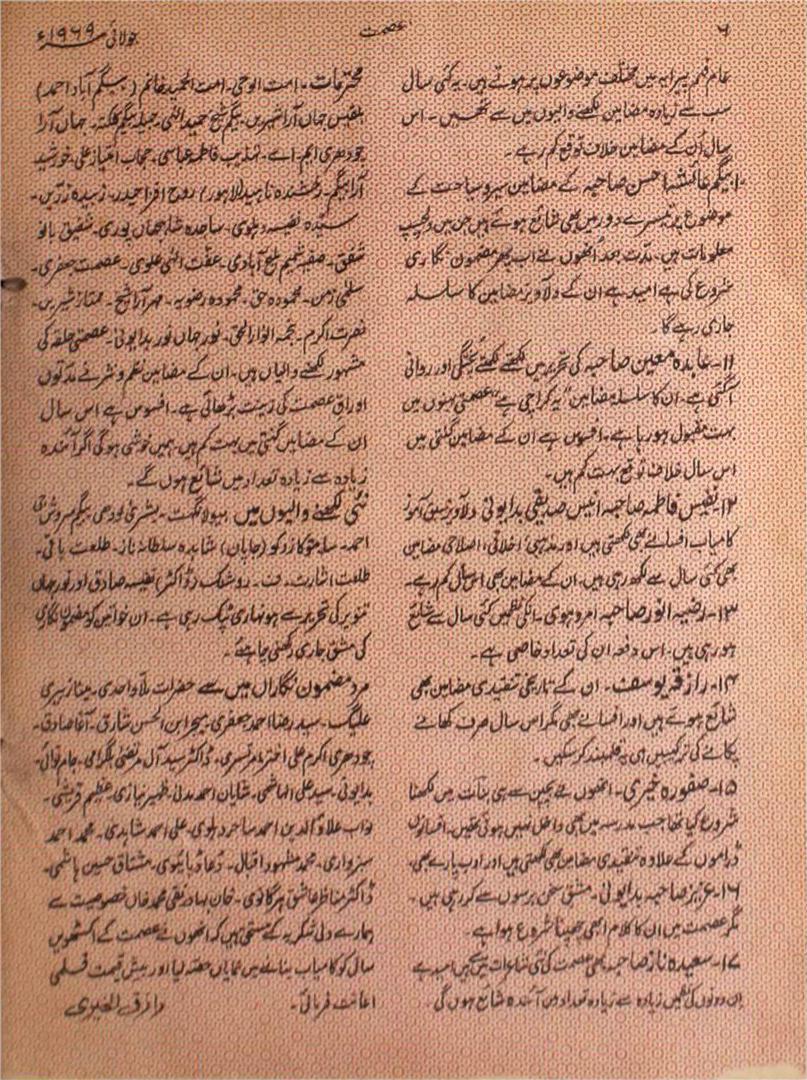 ۶
عصمت
جولائی ۱۹۶۹ء
عام فہم پیرایہ میں مختلف موضوعوں پر ہوتے ہیں۔ یہ کئی سال
سب سے زیادہ مضامین لکھنے والیوں میں سے تھیں۔ اس
سال اُن کے مضامین خلاف توقع کم رہے۔
۱۰۔ بیگم عائشہ احسن صاحبہ کے مضامین سیر و سیاحت کے
موضوع پر تیسرے دور میں بھی شائع ہوئے ہیں جن میں دلچسپ
معلومات ہیں۔ مدّت بعد اُنھوں نے اب پھر مضمون نگاری
شروع کی ہے امید ہے ان کے دلآویز مضامین کا سلسلہ
جاری رہے گا۔
۱۱۔ عابدہ معین صاحبہ کی تحریر میں لکھتے لکھتے پختگی اور روانی
آگئی ہے۔ ان کا سلسلہ مضامین "یہ کراچی ہے" عصمتی بہنوں میں
بہت مقبول ہو رہا ہے۔ افسوس ہے ان کے مضامین گنتی میں
اس سال خلاف توقع بہت کم ہیں۔
۱۲۔ نفیس فاطمہ صاحبہ انیس صدیقی بدایونی دلآویز سبق آموز
کامیاب افسانے بھی لکھتی ہیں اور مذہبی، اخلاقی، اصلاحی مضامین
بھی کئی سال سے لکھ رہی ہیں۔ ان کے مضامین بھی اس سال کم رہے۔
۱۳۔ رضیہ انور صاحبہ امروہوی۔ انکی نظمیں کئی سال سے شائع
ہو رہی ہیں۔ اس دفعہ ان کی تعداد خاصی ہے۔
۱۴۔ رازقہ یوسف۔ ان کے تاریخی تنقیدی مضامین بھی
شائع ہوئے ہیں اور افسانے بھی مگر اس سال صرف کھانے
پکانے کی ترکیبیں ہی یہ قلمبند کر سکیں۔
۱۵۔ صفورہ خیری۔ انھوں نے بچپن سے ہی بنات میں لکھنا
شروع کیا تھا جب مدرسہ میں بھی داخل نہیں ہوئی تھیں۔ افسانوں
ڈراموں کے علاوہ تنقیدی مضامین بھی لکھتی ہیں اور ادب پارے بھی۔
۱۶۔ عزیز صاحبہ بدایونی۔ مشق سخن برسوں سے کر رہی ہیں۔
مگر عصمت میں ان کا کلام ابھی چھپنا شروع ہوا ہے۔
۱۷۔ سعیدہ ناز صاحبہ بھی عصمت کی نئی شاعرات میں ہیں امید ہے
ان دونوں کی نظمیں زیادہ سے زیادہ تعداد میں آئندہ شائع ہوں گی۔
محترمات۔ امت الوحی۔ امت الحمید خانم (بیگم آباد احمد)
بلقیس جہاں آرا شیریں۔ بیگم شیخ حمید النبی۔ جمیلہ بیگم کلکتہ۔ جہاں آرا
چودھری ایم اے۔ تہذیب فاطمہ عباسی۔ حجاب امتیاز علی۔ خورشید
آرا بیگم۔ رخشندہ ناہید (لاہور) روح افزا حیدر۔ زبیدہ زریں۔
سیّدہ نفیسہ دہلوی۔ ساجدہ شاہجہاں پوری۔ شفیق بانو
شفق۔ صفیہ شمیم ملیح آبادی۔ عفّت الٰہی علوی۔ عصمت جعفری۔
سلمیٰ زمن۔ محمودہ حق۔ محمودہ رضویہ۔ مہر آرا شیخ۔ ممتاز شیریں۔
نصرت اکرم۔ نجمہ انوار الحق۔ نور جہاں نور بدایونی۔ عصمتی حلقہ کی
مشہور لکھنے والیاں ہیں۔ ان کے مضامین نظم و نثر نے مدتوں
اوراق عصمت کی زینت بڑھائی ہے۔ افسوس ہے اس سال
ان کے مضامین گنتی میں بہت کم ہیں ہمیں خوشی ہو گی اگر آئندہ
زیادہ سے زیادہ تعداد میں شائع ہوں گے۔
نئی لکھنے والیوں میں بیولا نگہت۔ بشریٰ لودھی بیگم سروش
احمد۔ سامتو کازوکو (جاپان) شاہدہ سلطانہ ناز۔ طلعت باقی۔
طلعت اشارت۔ ف۔ روشنک (ڈاکٹر) نفیسہ صادق اور نور جہاں
تنویر کی تحریر سے ہونہاری ٹپک رہی ہے۔ ان خواتین کو مضمون نگاری
کی مشق جاری رکھنی چاہئے۔
مرد مضمون نگاراں میں سے حضرات ملّا واحدی۔
علیگ۔ سید رضا احمد جعفری۔ میجر ابن الحسن شارق۔ آغا صادق۔
چودھری اکرم علی اختر امرتسری۔ ڈاکٹر سید آل مرتضیٰ بلگرامی۔ جام نوائی۔
بدایونی۔ سید علی الہاشمی۔ شایان احمد مدنی۔ ظہیر نیازی۔ عظیم قریشی۔
نواب علاؤالدین احمد ساحر دہلوی۔ علی احمد شاہدی۔ محمد احمد
سبزواری۔ محمد مشہود اقبال۔ دعا ڈبائیوی۔ مشتاق حسین ہاشمی۔
ڈاکٹر مناظر عاشق ہرگانوی۔ خان بہادر نقی محمد خاں خصوصیت سے
ہمارے دلی شکریہ کے مستحق ہیں کہ انھوں نے عصمت کے اکسٹھویں
سال کو کامیاب بنانے میں نمایاں حصّہ لیا اور بیش قیمت قلمی
اعانت فرمائی۔
رازق الخیری